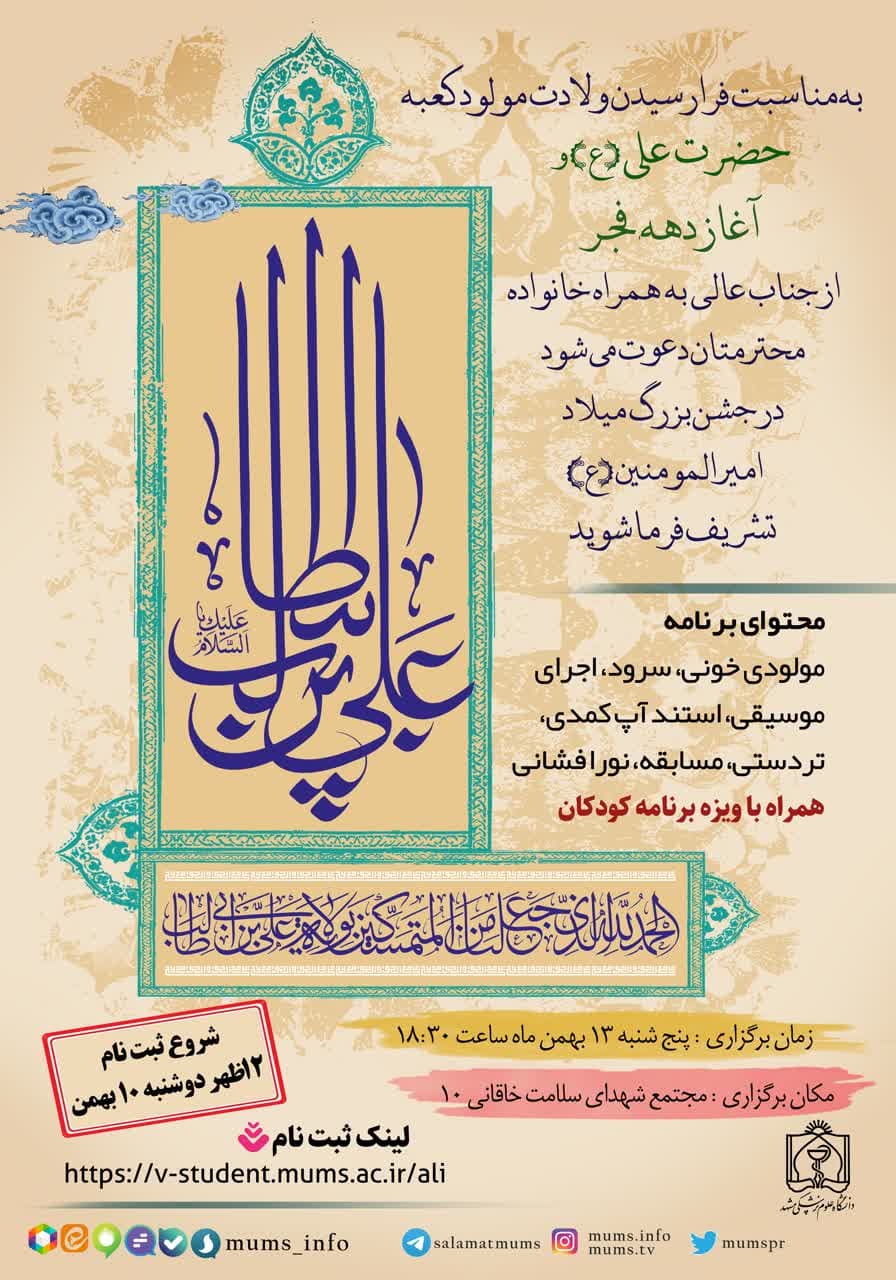 به مناسبت فرارسیدن ولادت مولود کعبه
حضرت علی (ع) و
آغاز دهه فجر
از جناب عالی به همراه خانواده
محترمتان دعوت می شود
در جشن بزرگ میلاد
امیرالمومنین (ع)
تشریف فرما شوید
علی بن ابیطالب
علیک یا
السلام
محتوای برنامه
مولودی خونی، سرود، اجرای
موسیقی، استند آپ کمدی،
تردستی، مسابقه، نورافشانی
همراه با ویژه برنامه کودکان
الحمدلله الذی جعلنا من المتمسکین بولایة علی بن ابی طالب
زمان برگزاری : پنج شنبه ۱۳ بهمن ماه ساعت ۱۸:۳۰
مکان برگزاری : مجتمع شهدای سلامت خاقانی ۱۰
شروع ثبت نام
۱۲ظهر دوشنبه ۱۰ بهمن
لینک ثبت نام
https://v-student.mums.ac.ir/ali
دانشگاه علوم پزشکی مشهد
mums_info
salamatmums
mums.info
mums.tv
mumspr